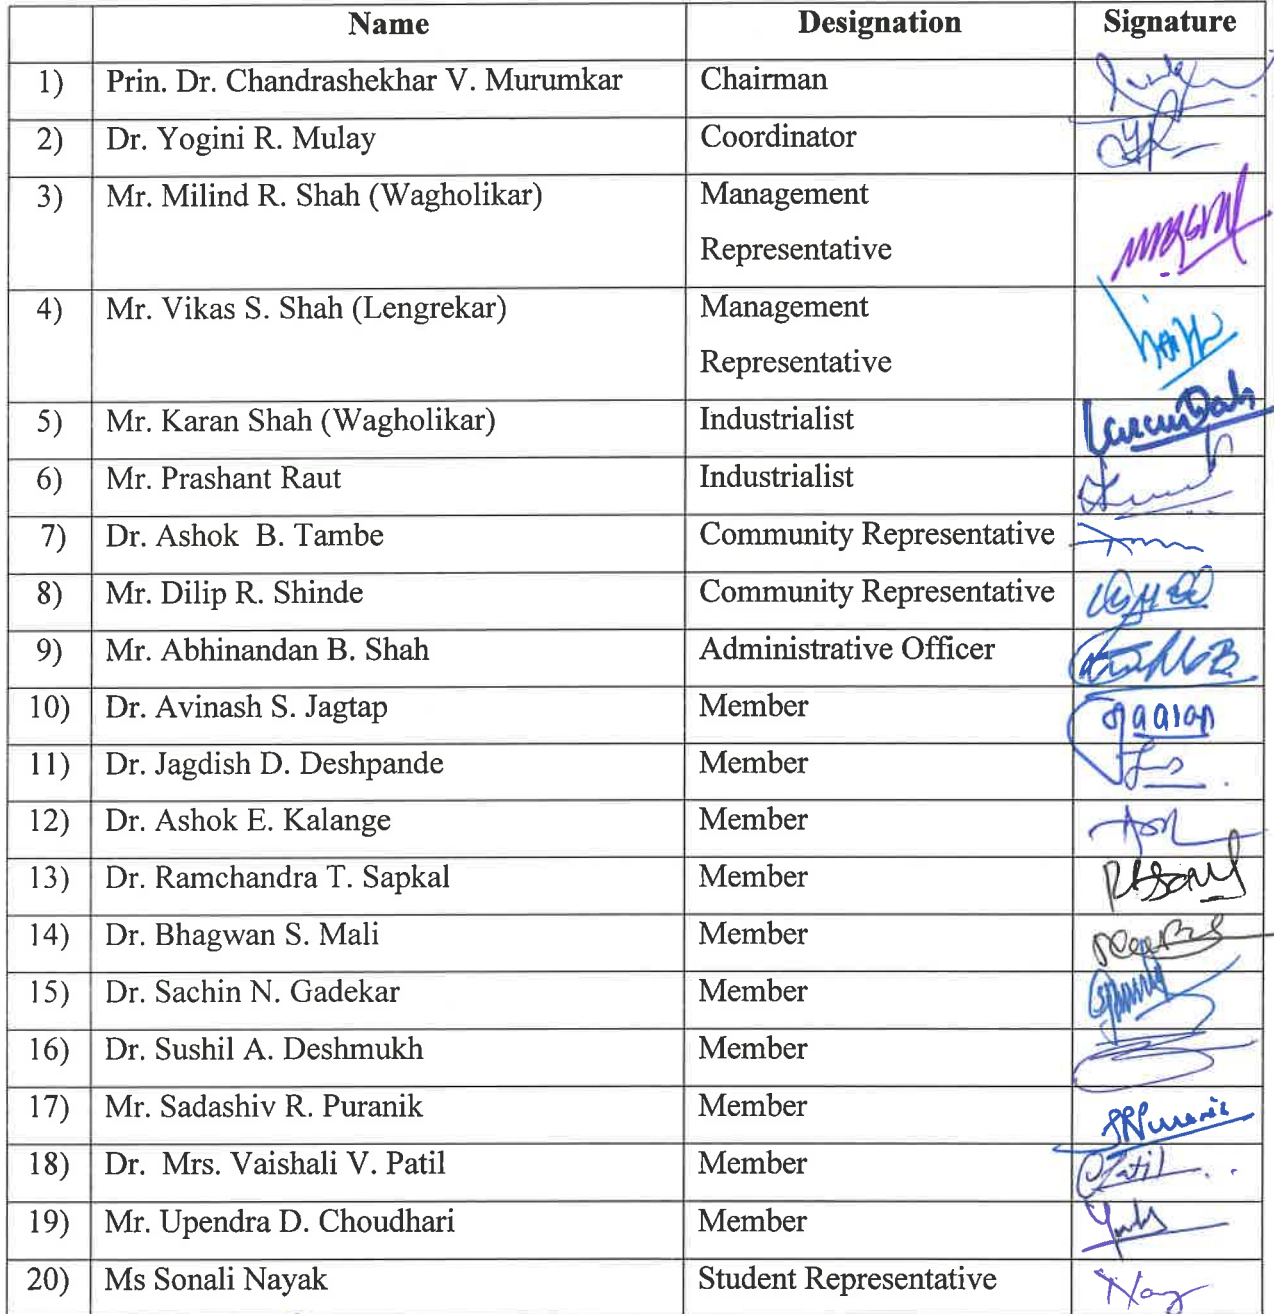 Name Designation Signature
1) Prin. Dr. Chandrashekhar V. Murumkar Chairman
2) Dr. Yogini R. Mulay Coordinator
3) Mr. Milind R. Shah (Wagholikar) Management
Representative
4) Mr. Vikas S. Shah (Lengrekar) Management
Representative
5) Mr. Karan Shah (Wagholikar) Industrialist
6) Mr. Prashant Raut Industrialist
7) Dr. Ashok B. Tambe Community Representative
8) Mr. Dilip R. Shinde Community Representative
9) Mr. Abhinandan B. Shah Administrative Officer
10) Dr. Avinash S. Jagtap Member
11) Dr. Jagdish D. Deshpande Member
12) Dr. Ashok E. Kalange Member
13) Dr. Ramchandra T. Sapkal Member
14) Dr. Bhagwan S. Mali Member
15) Dr. Sachin N. Gadekar Member
16) Dr. Sushil A. Deshmukh Member
17) Mr. Sadashiv R. Puranik Member
18) Dr. Mrs. Vaishali V. Patil Member
19) Mr. Upendra D. Choudhari Member
20) Ms Sonali Nayak Student Representative